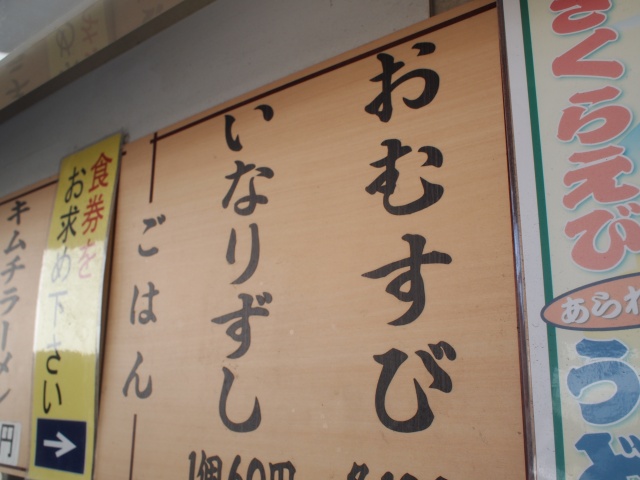 さくらえび
あられ
うど
おむすび
いなりずし
1個60円
ごはん
食券を
お求め下さい
キムチラーメン
円